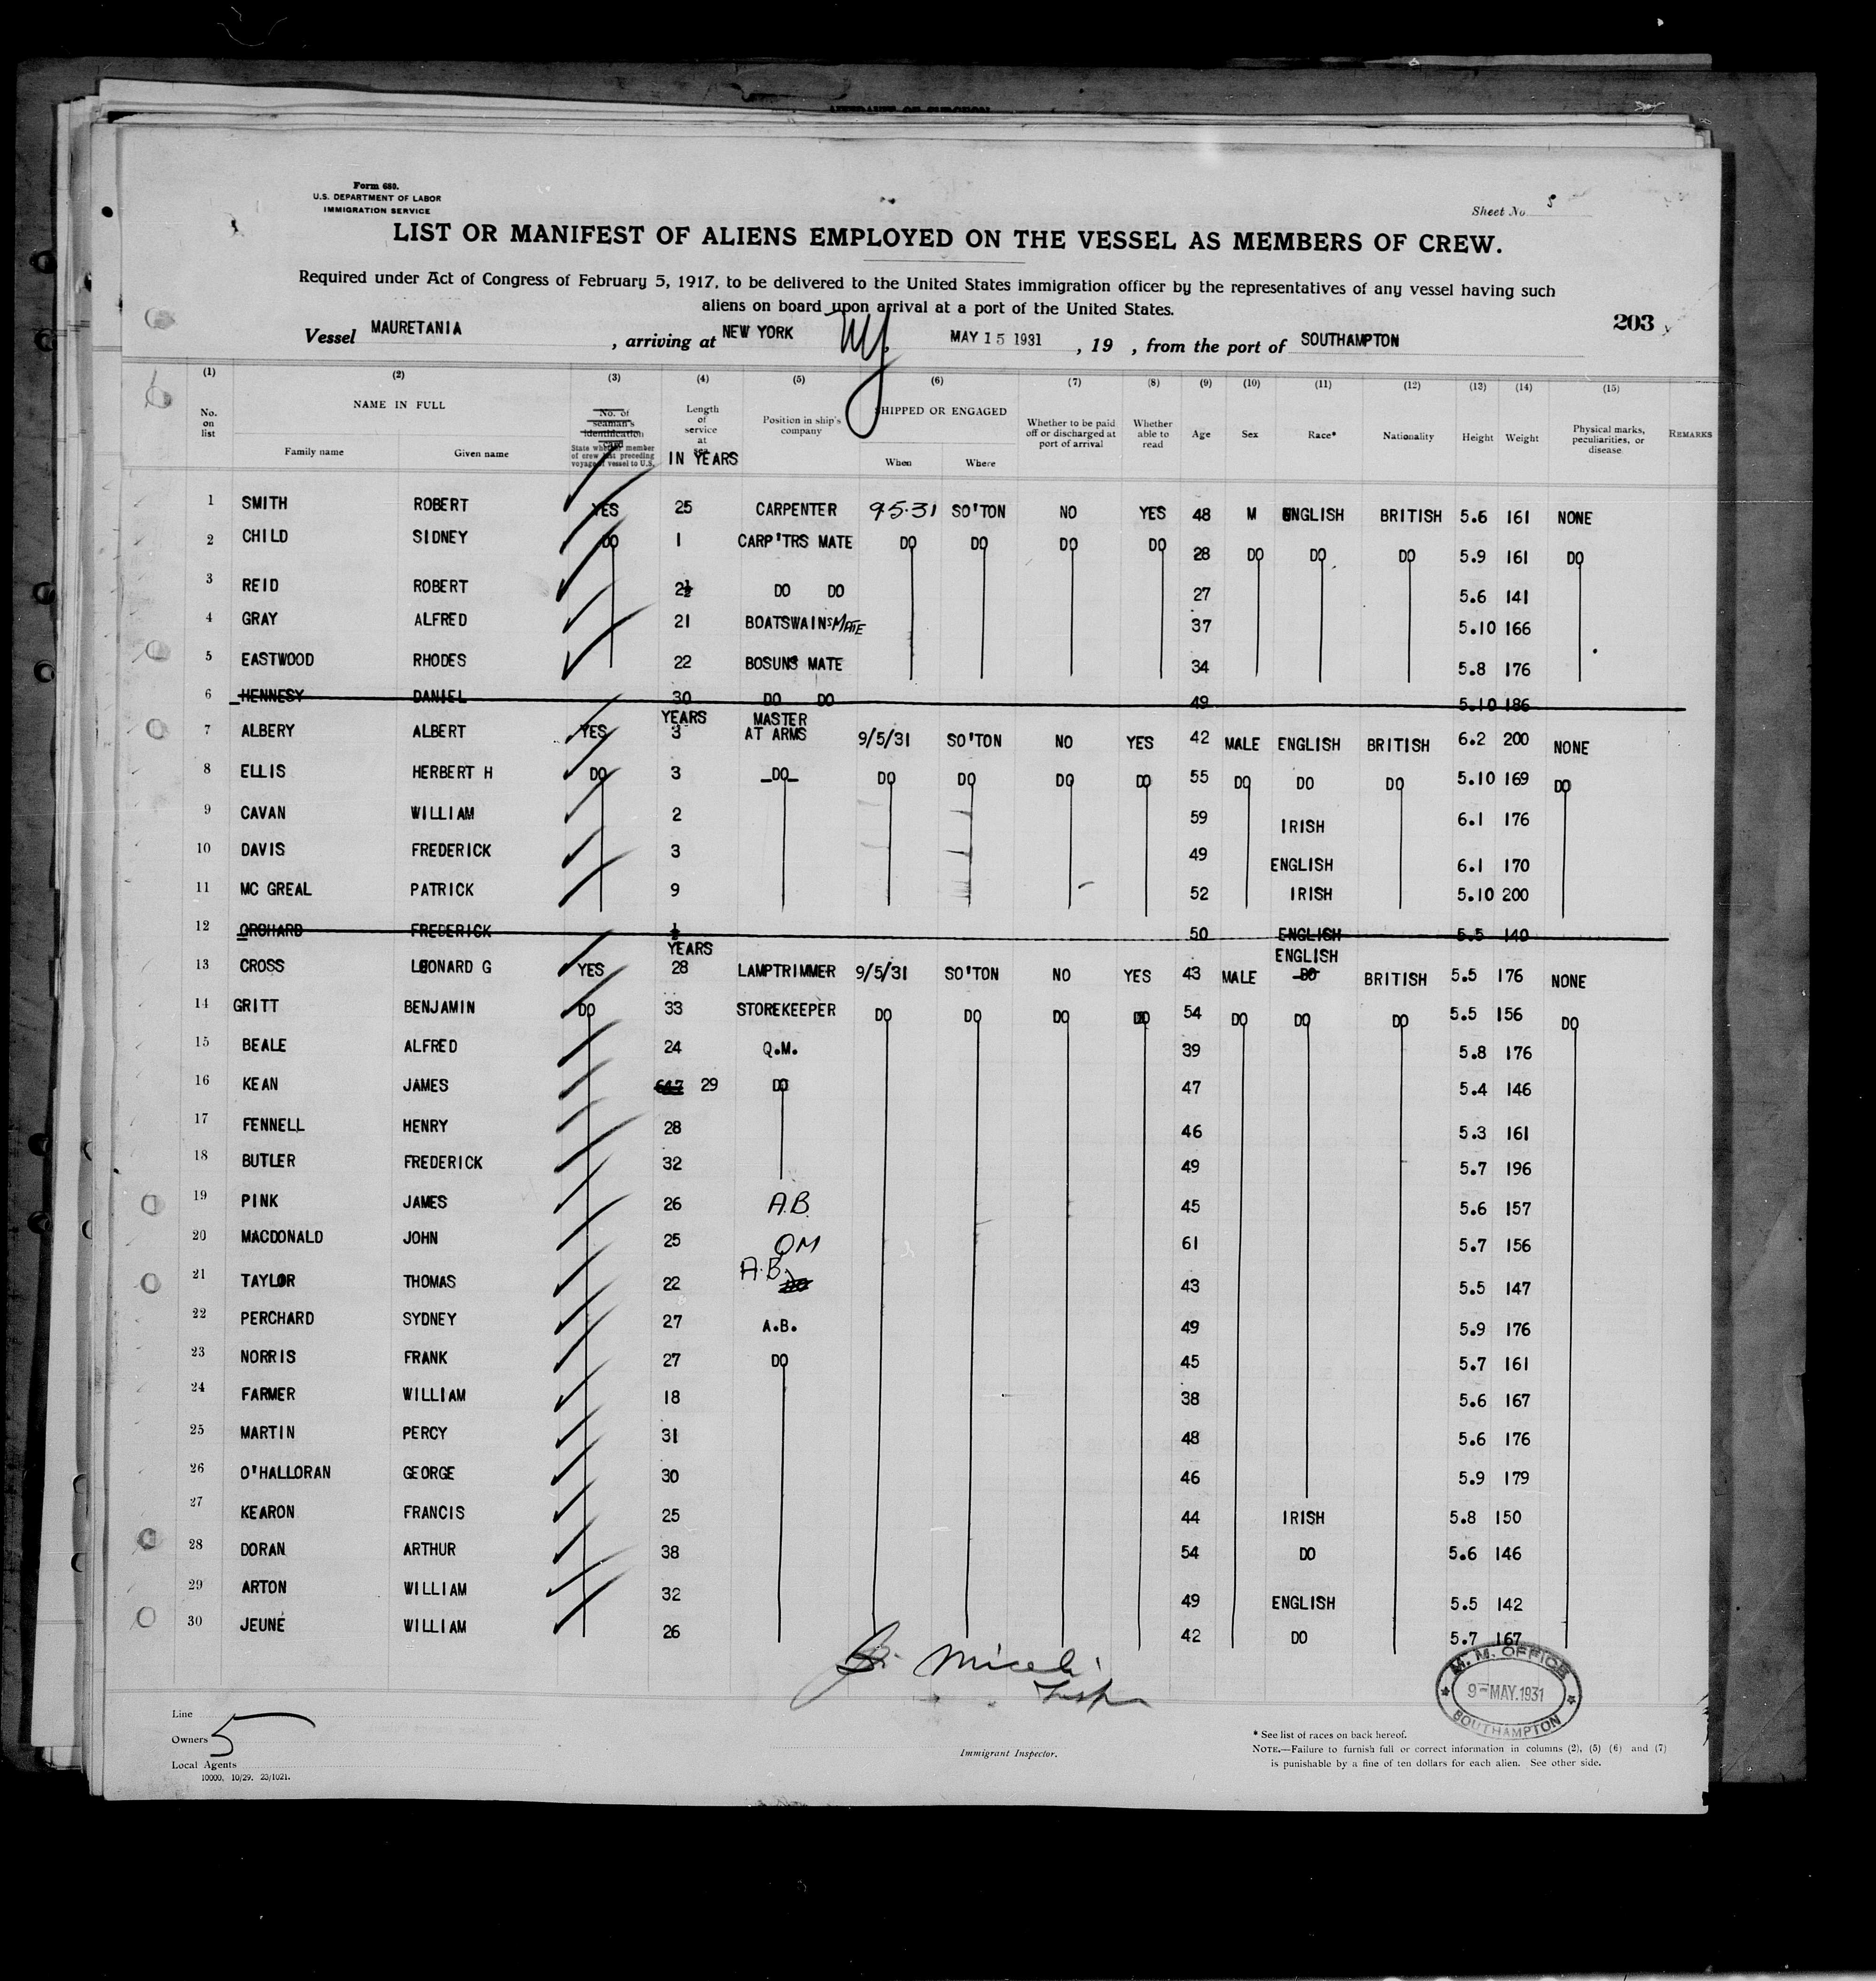 Form 680.
U.S. DEPARTMENT OF LABOR
IMMIGRATION SERVICE
Sheet No 5
LIST OR MANIFEST OF ALIENS EMPLOYED ON THE VESSEL AS MEMBERS OF CREW.
Required under Act of Congress of February 5, 1917, to be delivered to the United States immigration officer by the representatives of any vessel having such
aliens on board upon arrival at a port of the United States.
203
Vessel MAURETANIA , arriving at NEW YORK NY, MAY 15 1931 , 19 , from the port of SOUTHAMPTON
(1) (2) (3) (4) (5) (6) (7) (8) (9) (10) (11) (12) (13) (14) (15)
No. on list
NAME IN FULL
Family name Given name
No. of seaman's identification card
State whether member of crew last preceding voyage of vessel to U.S.
Length of service at sea
IN YEARS
Position in ship's company
SHIPPED OR ENGAGED
When Where
Whether to be paid off or discharged at port of arrival
Whether able to read
Age Sex Race* Nationality Height Weight
Physical marks, peculiarities, or disease
REMARKS
1 SMITH ROBERT YES 25 CARPENTER 9.5.31 SO'TON NO YES 48 M ENGLISH BRITISH 5.6 161 NONE
2 CHILD SIDNEY DO 1 CARP'TRS MATE DO DO DO DO 28 DO DO DO 5.9 161 DO
3 REID ROBERT 2½ DO DO 27 5.6 141
4 GRAY ALFRED 21 BOATSWAINS MATE 37 5.10 166
5 EASTWOOD RHODES 22 BOSUNS MATE 34 5.8 176
6 HENNESY DANIEL 30 DO DO 49 5.10 186
YEARS
7 ALBERY ALBERT YES 3 MASTER AT ARMS 9/5/31 SO'TON NO YES 42 MALE ENGLISH BRITISH 6.2 200 NONE
8 ELLIS HERBERT H DO 3 _DO_ DO DO DO DO 55 DO DO DO 5.10 169 DO
9 CAVAN WILLIAM 2 59 IRISH 6.1 176
10 DAVIS FREDERICK 3 49 ENGLISH 6.1 170
11 MC GREAL PATRICK 9 52 IRISH 5.10 200
12 ORCHARD FREDERICK ½ 50 ENGLISH 5.5 140
YEARS ENGLISH
13 CROSS LEONARD G YES 28 LAMPTRIMMER 9/5/31 SO'TON NO YES 43 MALE DO BRITISH 5.5 176 NONE
14 GRITT BENJAMIN DO 33 STOREKEEPER DO DO DO DO 54 DO DO DO 5.5 156 DO
15 BEALE ALFRED 24 Q.M. 39 5.8 176
16 KEAN JAMES 29 DO 47 5.4 146
17 FENNELL HENRY 28 46 5.3 161
18 BUTLER FREDERICK 32 49 5.7 196
19 PINK JAMES 26 A.B. 45 5.6 157
20 MACDONALD JOHN 25 QM 61 5.7 156
21 TAYLOR THOMAS 22 A.B. DO 43 5.5 147
22 PERCHARD SYDNEY 27 A.B. 49 5.9 176
23 NORRIS FRANK 27 DO 45 5.7 161
24 FARMER WILLIAM 18 38 5.6 167
25 MARTIN PERCY 31 48 5.6 176
26 O'HALLORAN GEORGE 30 46 5.9 179
27 KEARON FRANCIS 25 44 IRISH 5.8 150
28 DORAN ARTHUR 38 54 DO 5.6 146
29 ARTON WILLIAM 32 49 ENGLISH 5.5 142
30 JEUNE WILLIAM 26 42 DO 5.7 167
Miceli
Insp
M. M. OFFICE
9 MAY. 1931
SOUTHAMPTON
Line
Owners 5
Local Agents
10000. 10/29. 23/1021.
Immigrant Inspector.
* See list of races on back hereof.
NOTE.—Failure to furnish full or correct information in columns (2), (5) (6) and (7)
is punishable by a fine of ten dollars for each alien. See other side.